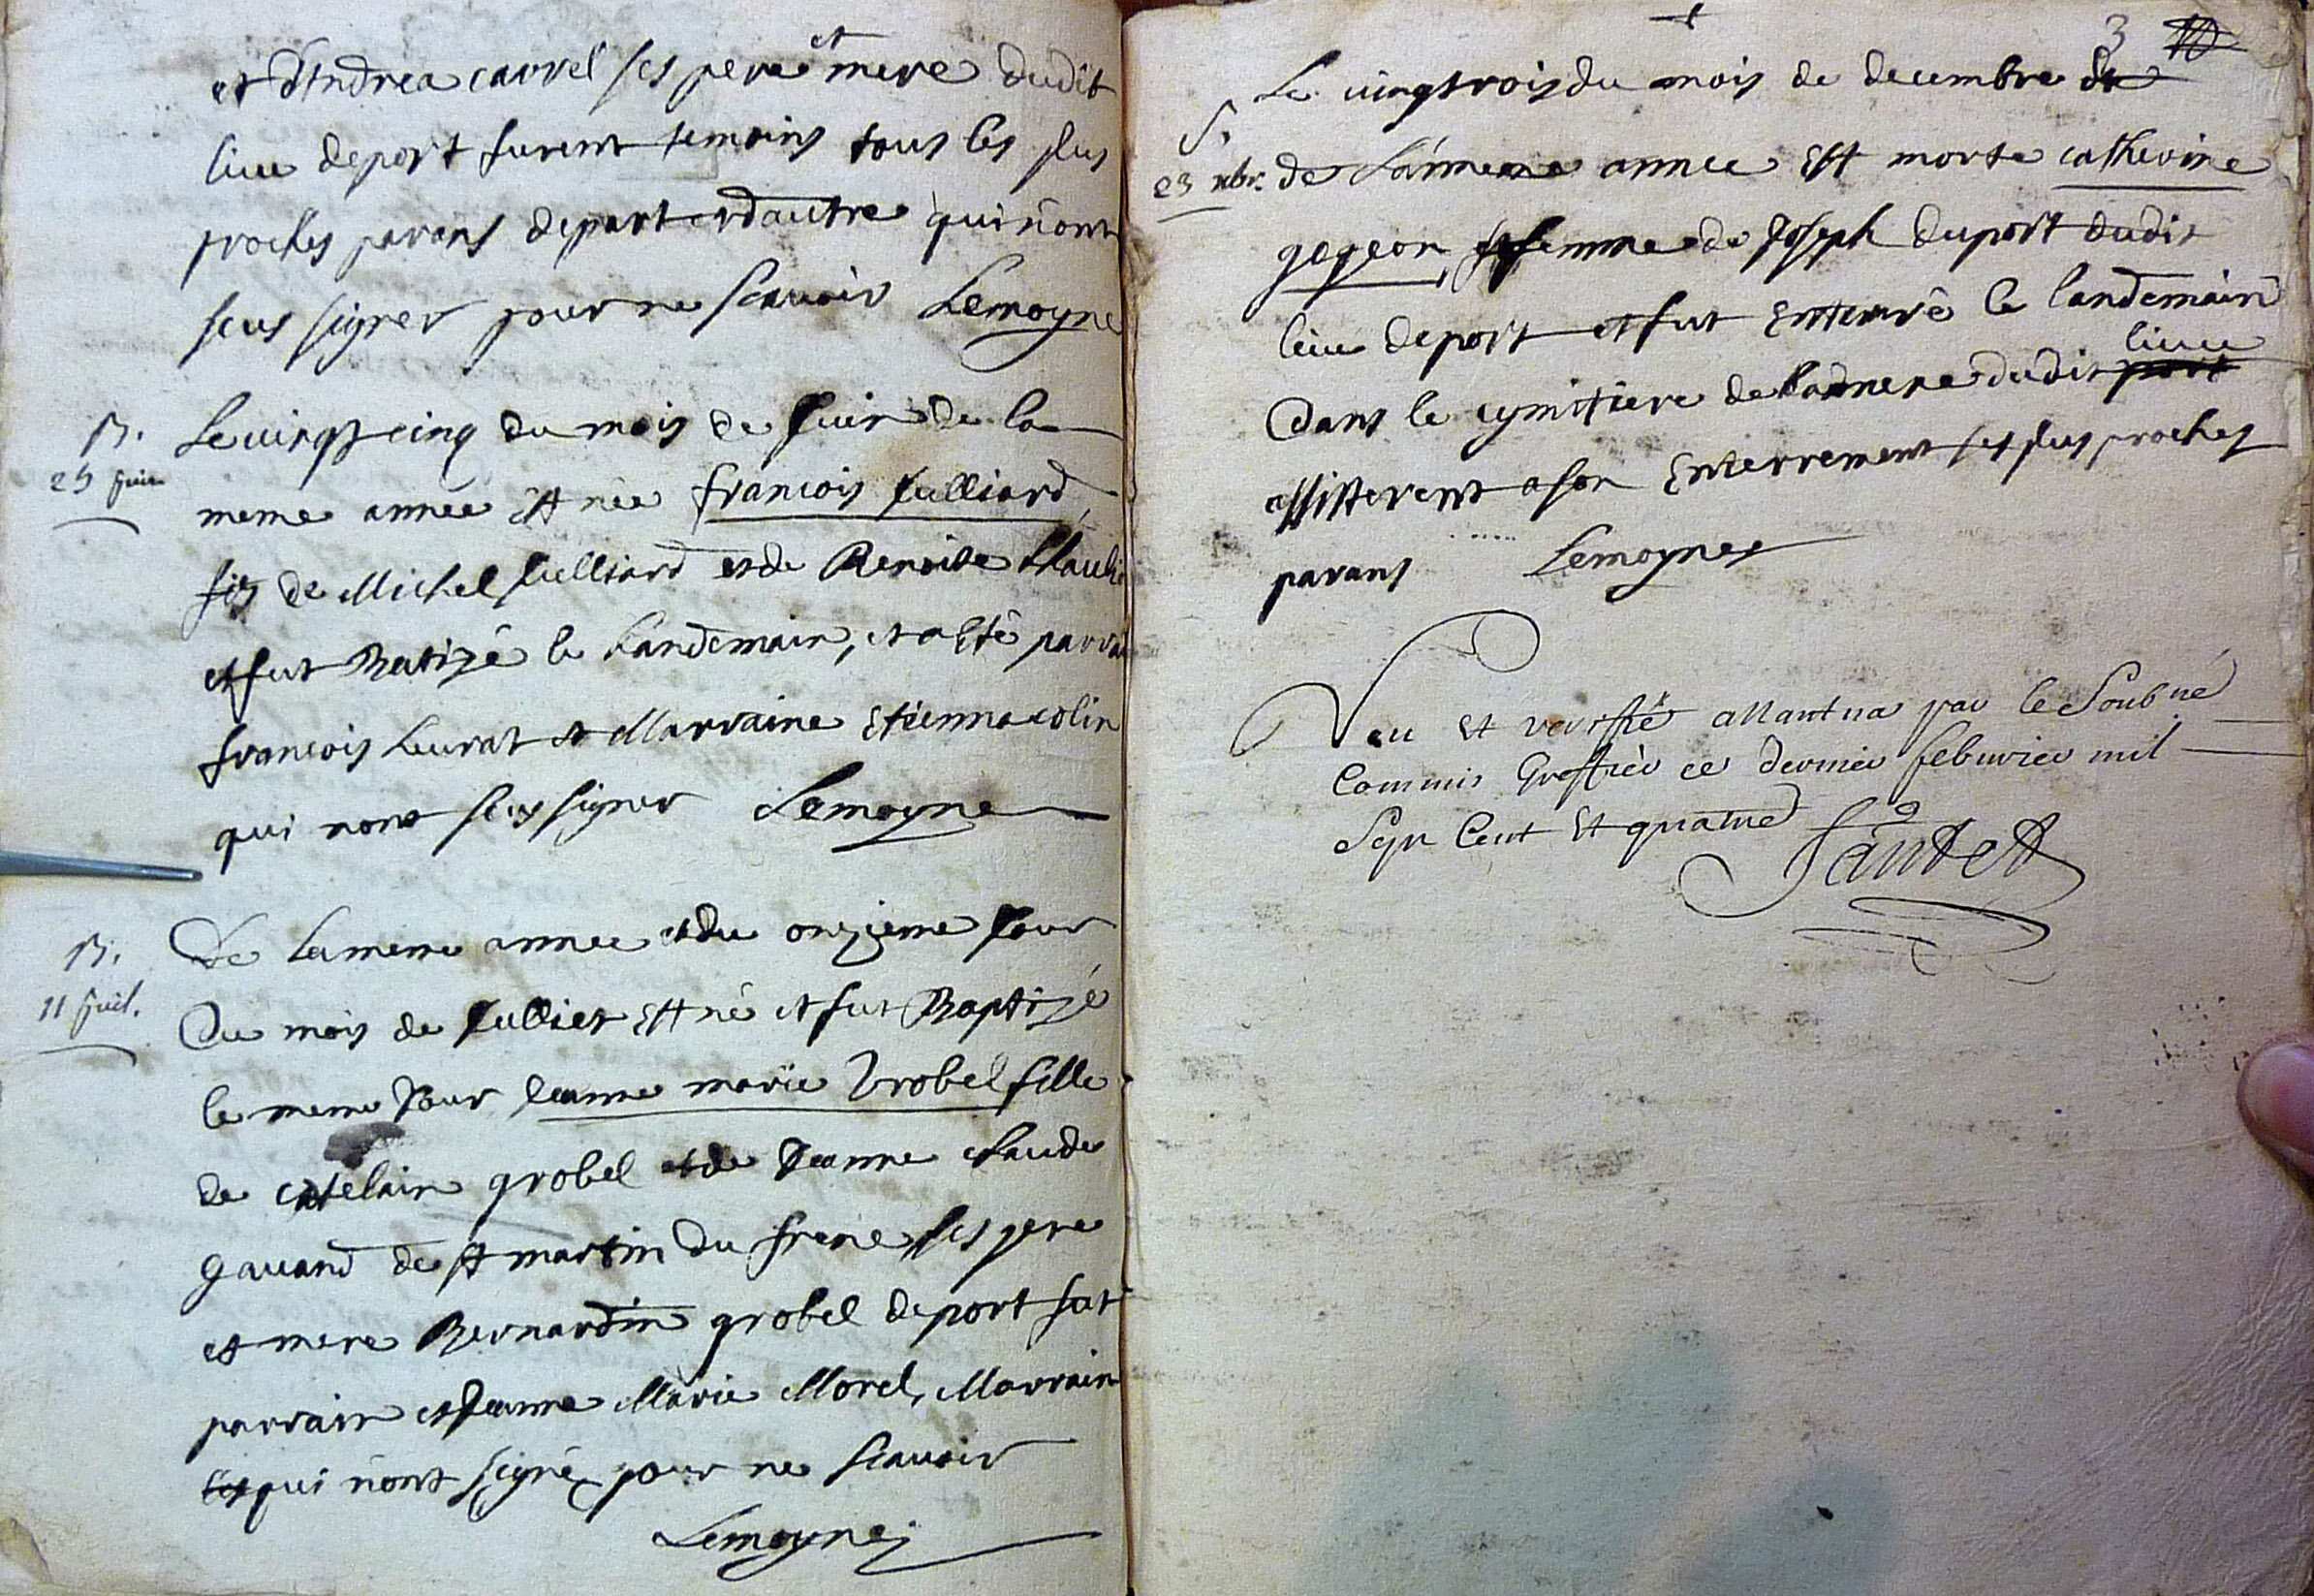 et d'Andrea carrel ses pere et mere dudit
lieu de port furent temoins tous les plus
proches parans de part et d'autre qui n'ont
sceus signer pour ne scavoir Lemoyne
B.
25 juin
Le vingt cinq du mois de Juin de la
meme annee est née francois Julliard
fis de Michel Julliard et de Benoite
et fut Batizé le Landemain, et a eté parrai
francois Leurat et Marraine Etienna colin
qui nont sceus signer Lemoyne
B.
11 juil.
De la meme annee et du onzieme Jour
Du mois de Jullier est né et fut Baptizé
le meme Jour Jeanne marie Grobel fille
de catelain grobel et de Jeanne claude
gavand de st martin du frene ses pere
et mere Bernardin grobel de port fut
parrain et Jeanne Marie Morel, Marrain
qui n'ont signé pour ne scavoir
Lemoyne
3
S.
23 xbr.
Le vingtrois du mois de decembre de
de la meme annee est morte catherine
gogeon femme de Joseph duport dudit
lieu de port et fut enterré le landemain
Dans le cymitiere de dudit port lieu
assisterent a son Enterrement ses plus proches
parans Lemoyne
Veu et veriffié a Nantua par le Soubné
Commis Greffier ce dernier febvrier mil
Sept Cent Et quatre